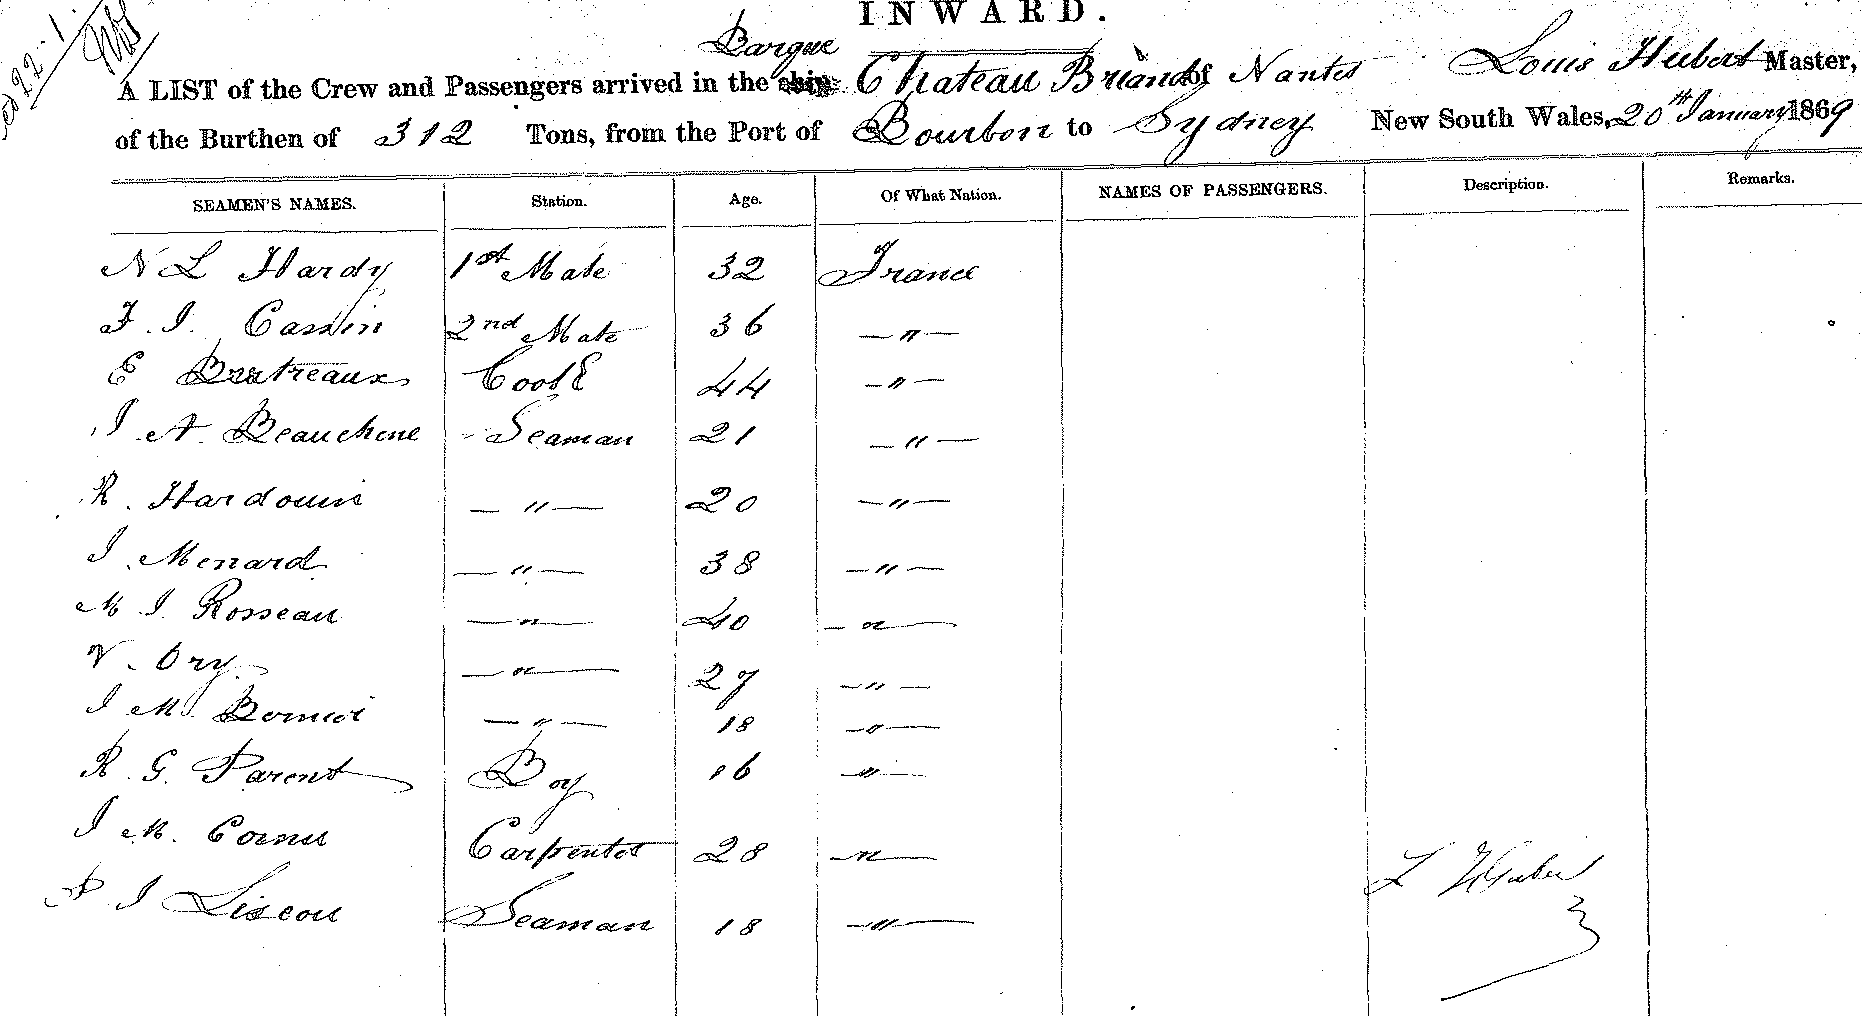 INWARD.
Barque
A LIST of the Crew and Passengers arrived in the ship Chateau Briand of Nantes Louis Hubert Master,
of the Burthen of 312 Tons, from the Port of Bourbon to Sydney New South Wales, 20th January 1869
SEAMEN'S NAMES. Station. Age. Of What Nation. NAMES OF PASSENGERS. Description. Remarks.
N L Hardy 1st Mate 32 France
F. I. Cassin 2nd Mate 36 — " —
E Bertreaux Cook 44 — " —
J A. Beauchene Seaman 21 — " —
R. Hardouin — " — 20 — " —
J Menard — " — 38 — " —
M J Rosseau — " — 40 — " —
V. Ory — " — 27 — " —
J M. — " — 18 — " —
R. G. Parent Boy 16 — " —
J M. Cornu Carpenter 28 — " —
P J Liscou Seaman 18 — " —
L Huber